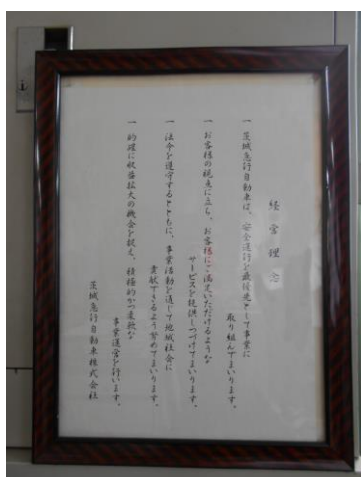 経営理念
一 茨城急行自動車は、安全運行を最優先として事業に
取り組んでまいります。
一 お客様の視点に立ち、お客様にご満足いただけるような
サービスを提供しつづけてまいります。
一 法令を遵守するとともに、事業活動を通じて地域社会に
貢献できるよう努めてまいります。
一 的確に収益拡大の機会を捉え、積極的かつ柔軟な
事業運営を行います。
茨城急行自動車株式会社